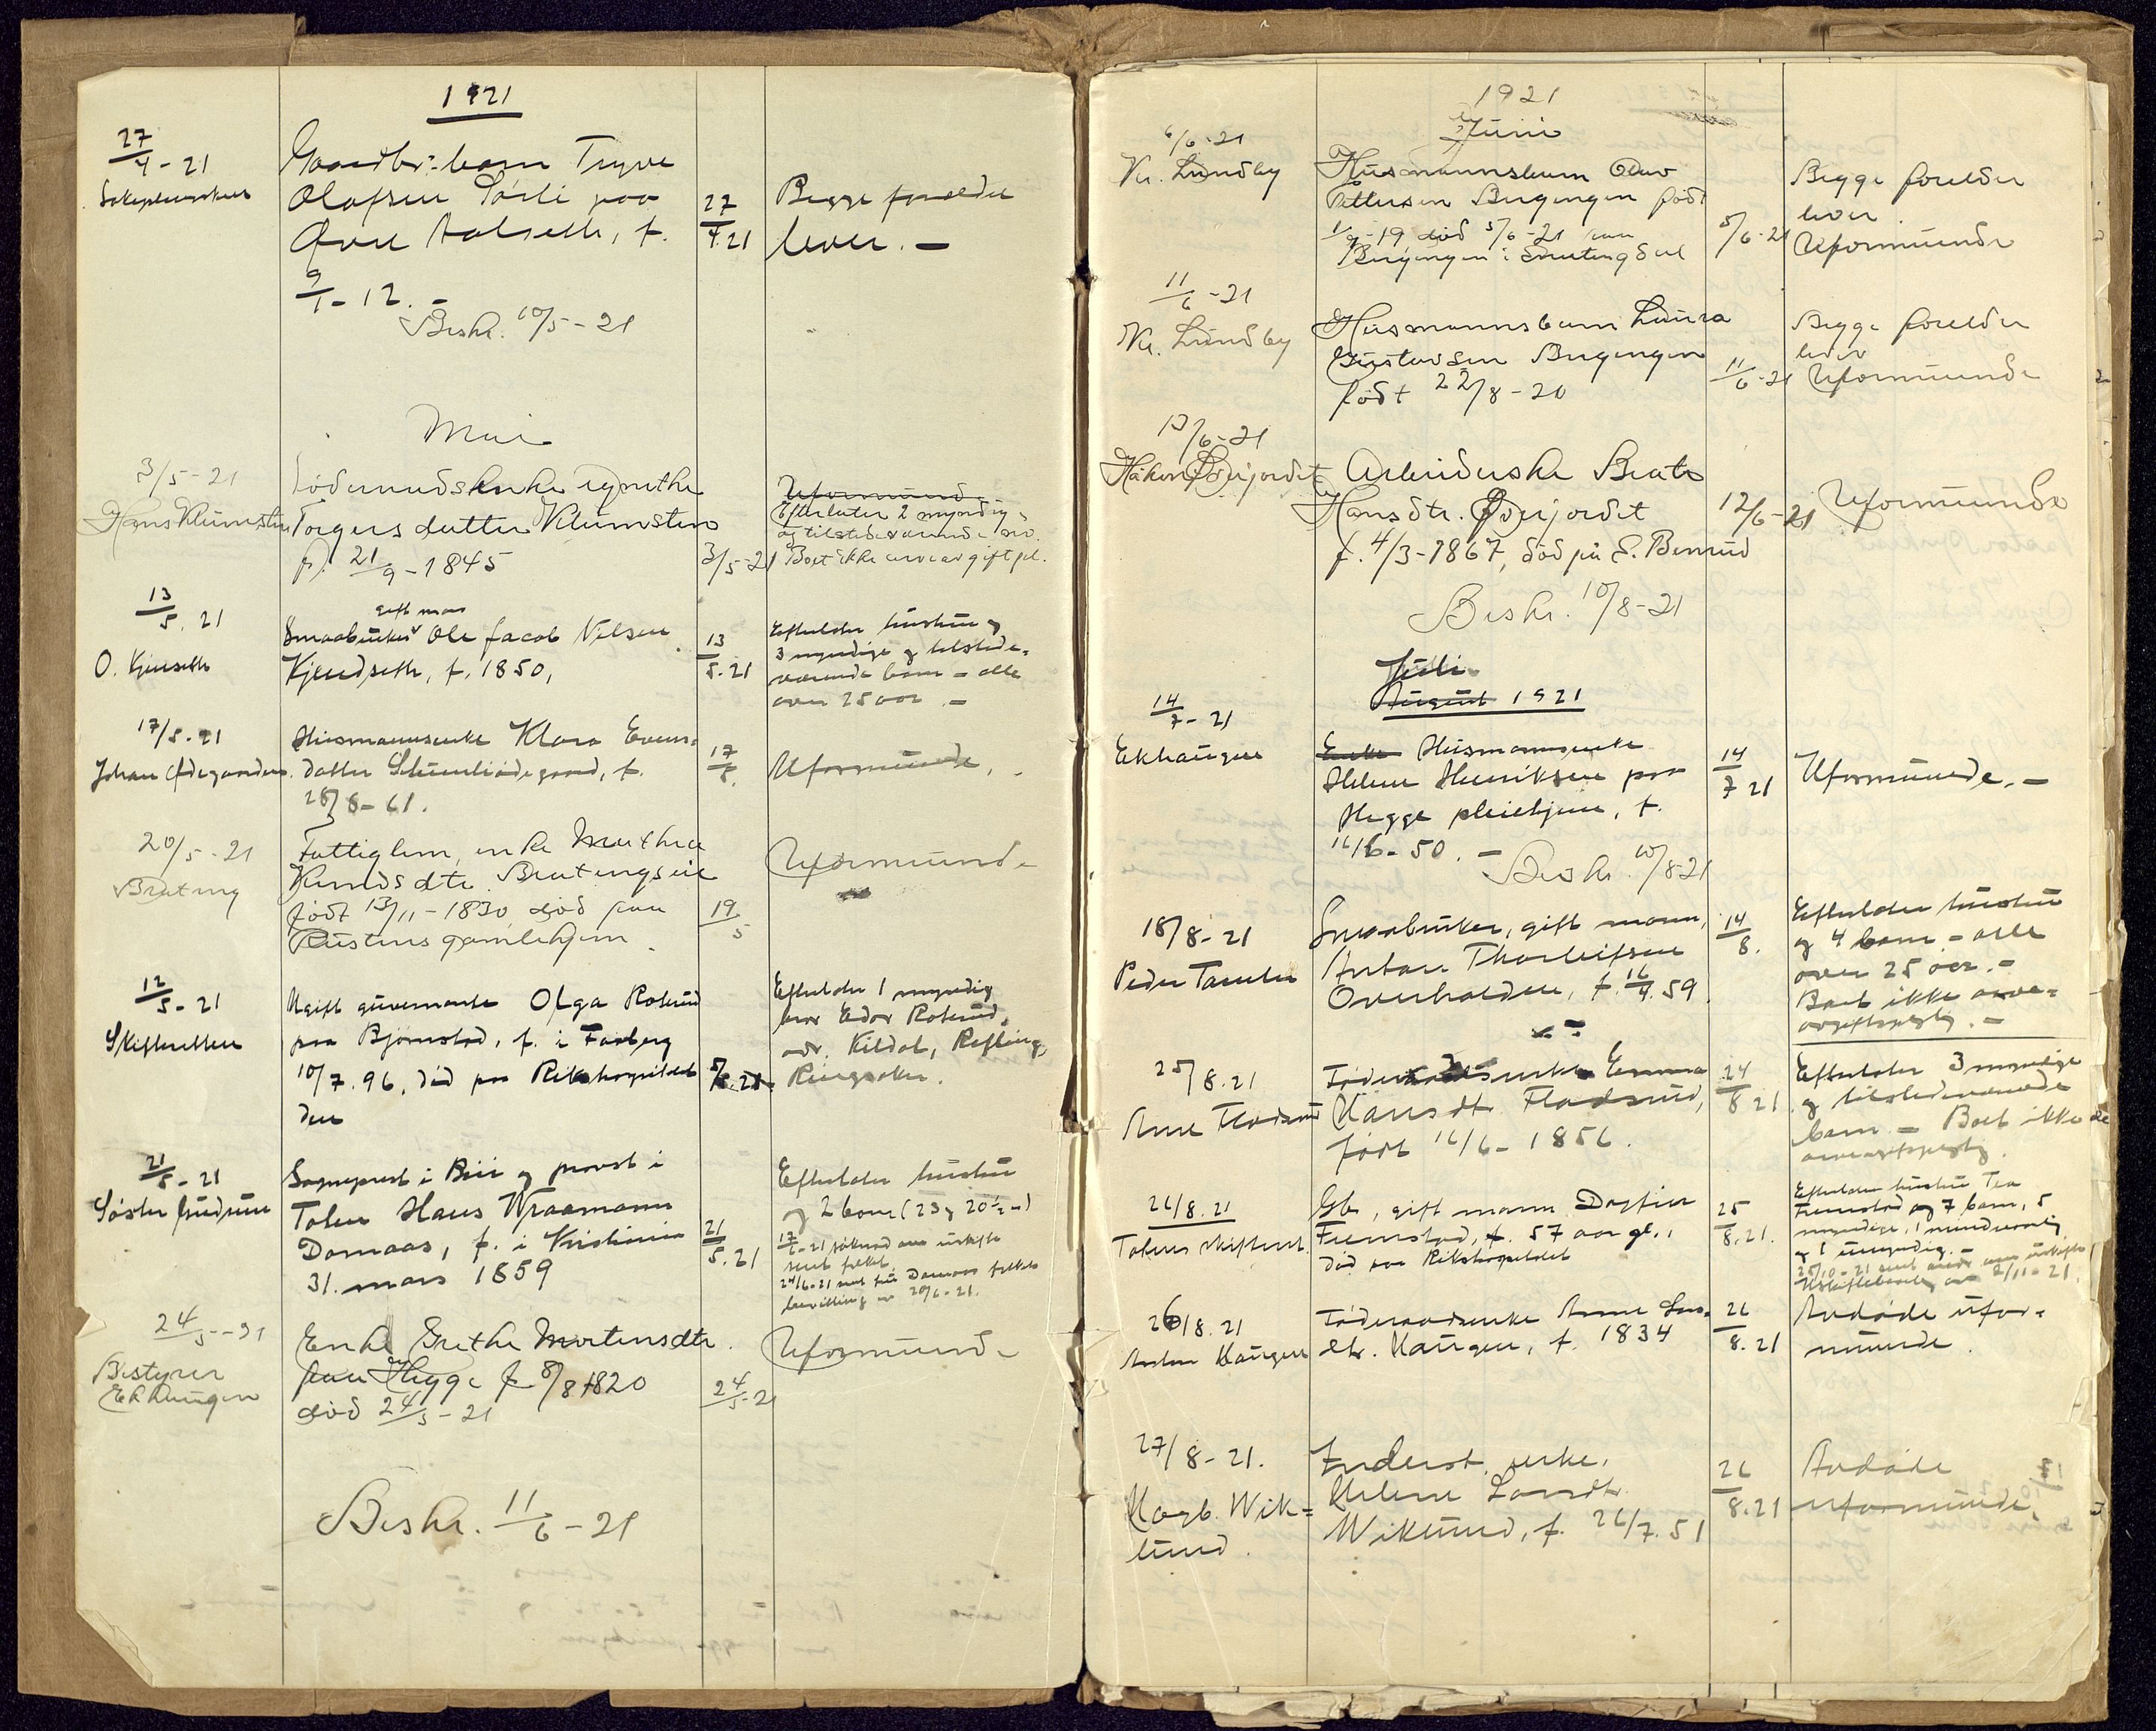 1921
27/4 - 21
Gaardbr. barn Trygve
Olafsen Sørli paa
Øvre Aalseth, f.
9/1 - 12. -
27/4.21
Begge forældre
lever. -
Beskr. 10/5 - 21
Mai
3/5 - 21
Hans Klumsten
Torgersdatter Klumsten
f. 21/9 - 1845
3/5 - 21
Uformuende
Efterlater 2 myndige
og tilstedeværende
Boet ikke arveavgiftspl.
13/5. 21
O. Kjenseth
gift mann
Smaabruker Ole Jacob Nilsen
Kjendseth, f. 1850,
13/5.21
Efterlader hustru og
3 myndige og tilstede-
værende barn - alle
over 25 aar. -
17/5. 21
Johan Ødegaarden
Husmannsenke Klara Evens-
datter f.
28/8 - 61.
17/5.
Uformuende.
20/5 - 21
Brateng
Fattiglem, enke Marthea
Knudsdtr. Bratengseie
født 13/11 - 1830, død paa
Rustens gamlehjem.
19/5
Uformuende
12/5 - 21
Skifteretten
Ugift guvernante Olga Roterud
paa Bjørnstad, f. i Faaberg
10/7. 96, død paa Rikshospitalet
den
5/5.21
Efterlader 1 myndig
bror Edor Roterud,
adr. Kildal, Refling,
Ringsaker.
21/5 - 21
Søster Gudrun
Sogneprest i Biri og provst i
Toten Hans Wraamann
Domaas, f. i Kristiania
31. mars 1859
21/5.21
Efterlader hustru
og 2 barn (23 og 20 1/2 )
17/6 - 21 søknad om uskifte
sendt fylket.
24/6 - 21 sendt fru Domaas fylkets
bevilling av 20/6 - 21.
24/5 - 21
Bestyrer
Ekhaugen
Enke Grethe Mortensdtr.
paa Hegge f. 8/8 1820
død 24/5 - 21
24/5 - 21
Uformuende
Beskr. 11/6 - 21
1921
Juni
6/6 - 21
Kr. Lundby
Husmannsbarn Olav
Pettersen Bergengen født
1/9 - 19, død 5/6 - 21 paa
Bergengen i Snertingdal
5/6 - 21
Begge forelder
lever.
Uformuende
11/6 - 21
Kr. Lundby
Husmannsbarn Laura
Gustavsen Bergengen
født 22/8 - 20
11/6 - 21
Begge forelder
lever
Uformuende
13/6 - 21
Håkon Øverjordet
Arbeiderske Beate
Hansdtr. Øverjordet
f. 4/3 - 1867, død på
12/6 - 21
Uformuende
Beskr. 10/8 - 21
Juli
August 1921
14/7 - 21
Ekhaugen
Enke Husmannsenke
Helene Henriksen paa
Hegge pleiehjem, f.
16/6 - 50. -
14/7 21
Uformuende. -
Beskr. 10/8 21
18/8 - 21
Smaabruker, gift mann,
Anton Thorleifsen
Overhalden, f. 16/4. 59
14/8.
Efterlader hustru
og 4 barn - alle
over 25 aar. -
Boet ikke arve-
avgiftspligtig. -
25/8. 21
Hansdtr. Fladsrud,
født 16/6 - 1856.
24/8 21
Efterlader 3 myndige
og tilstedeværende
barn - Boet ikke
arveavgiftspligtig.
26/8. 21
Totens skifterett.
Gb., gift mann Dagfin
Fremstad, f. 57 aar gl.,
død paa Rikshospitalet
25/8.21.
Efterlader hustru Tea
Fremstad og 7 barn, 5
myndige, 1 mindreaarig
og 1 umyndig. -
26/8. 21
Anton Haugen
Føderaadsenke Anne Lars-
dtr. Haugen, f. 1834
26/8.21
Avdøde ufor-
muende.
27/8 - 21.
Hagb. Wik-
lund.
Inderst enke.
Helene Larsdtr.
Wiklund, f. 26/7. 51
26/8.21
Avdøde
uformuende.